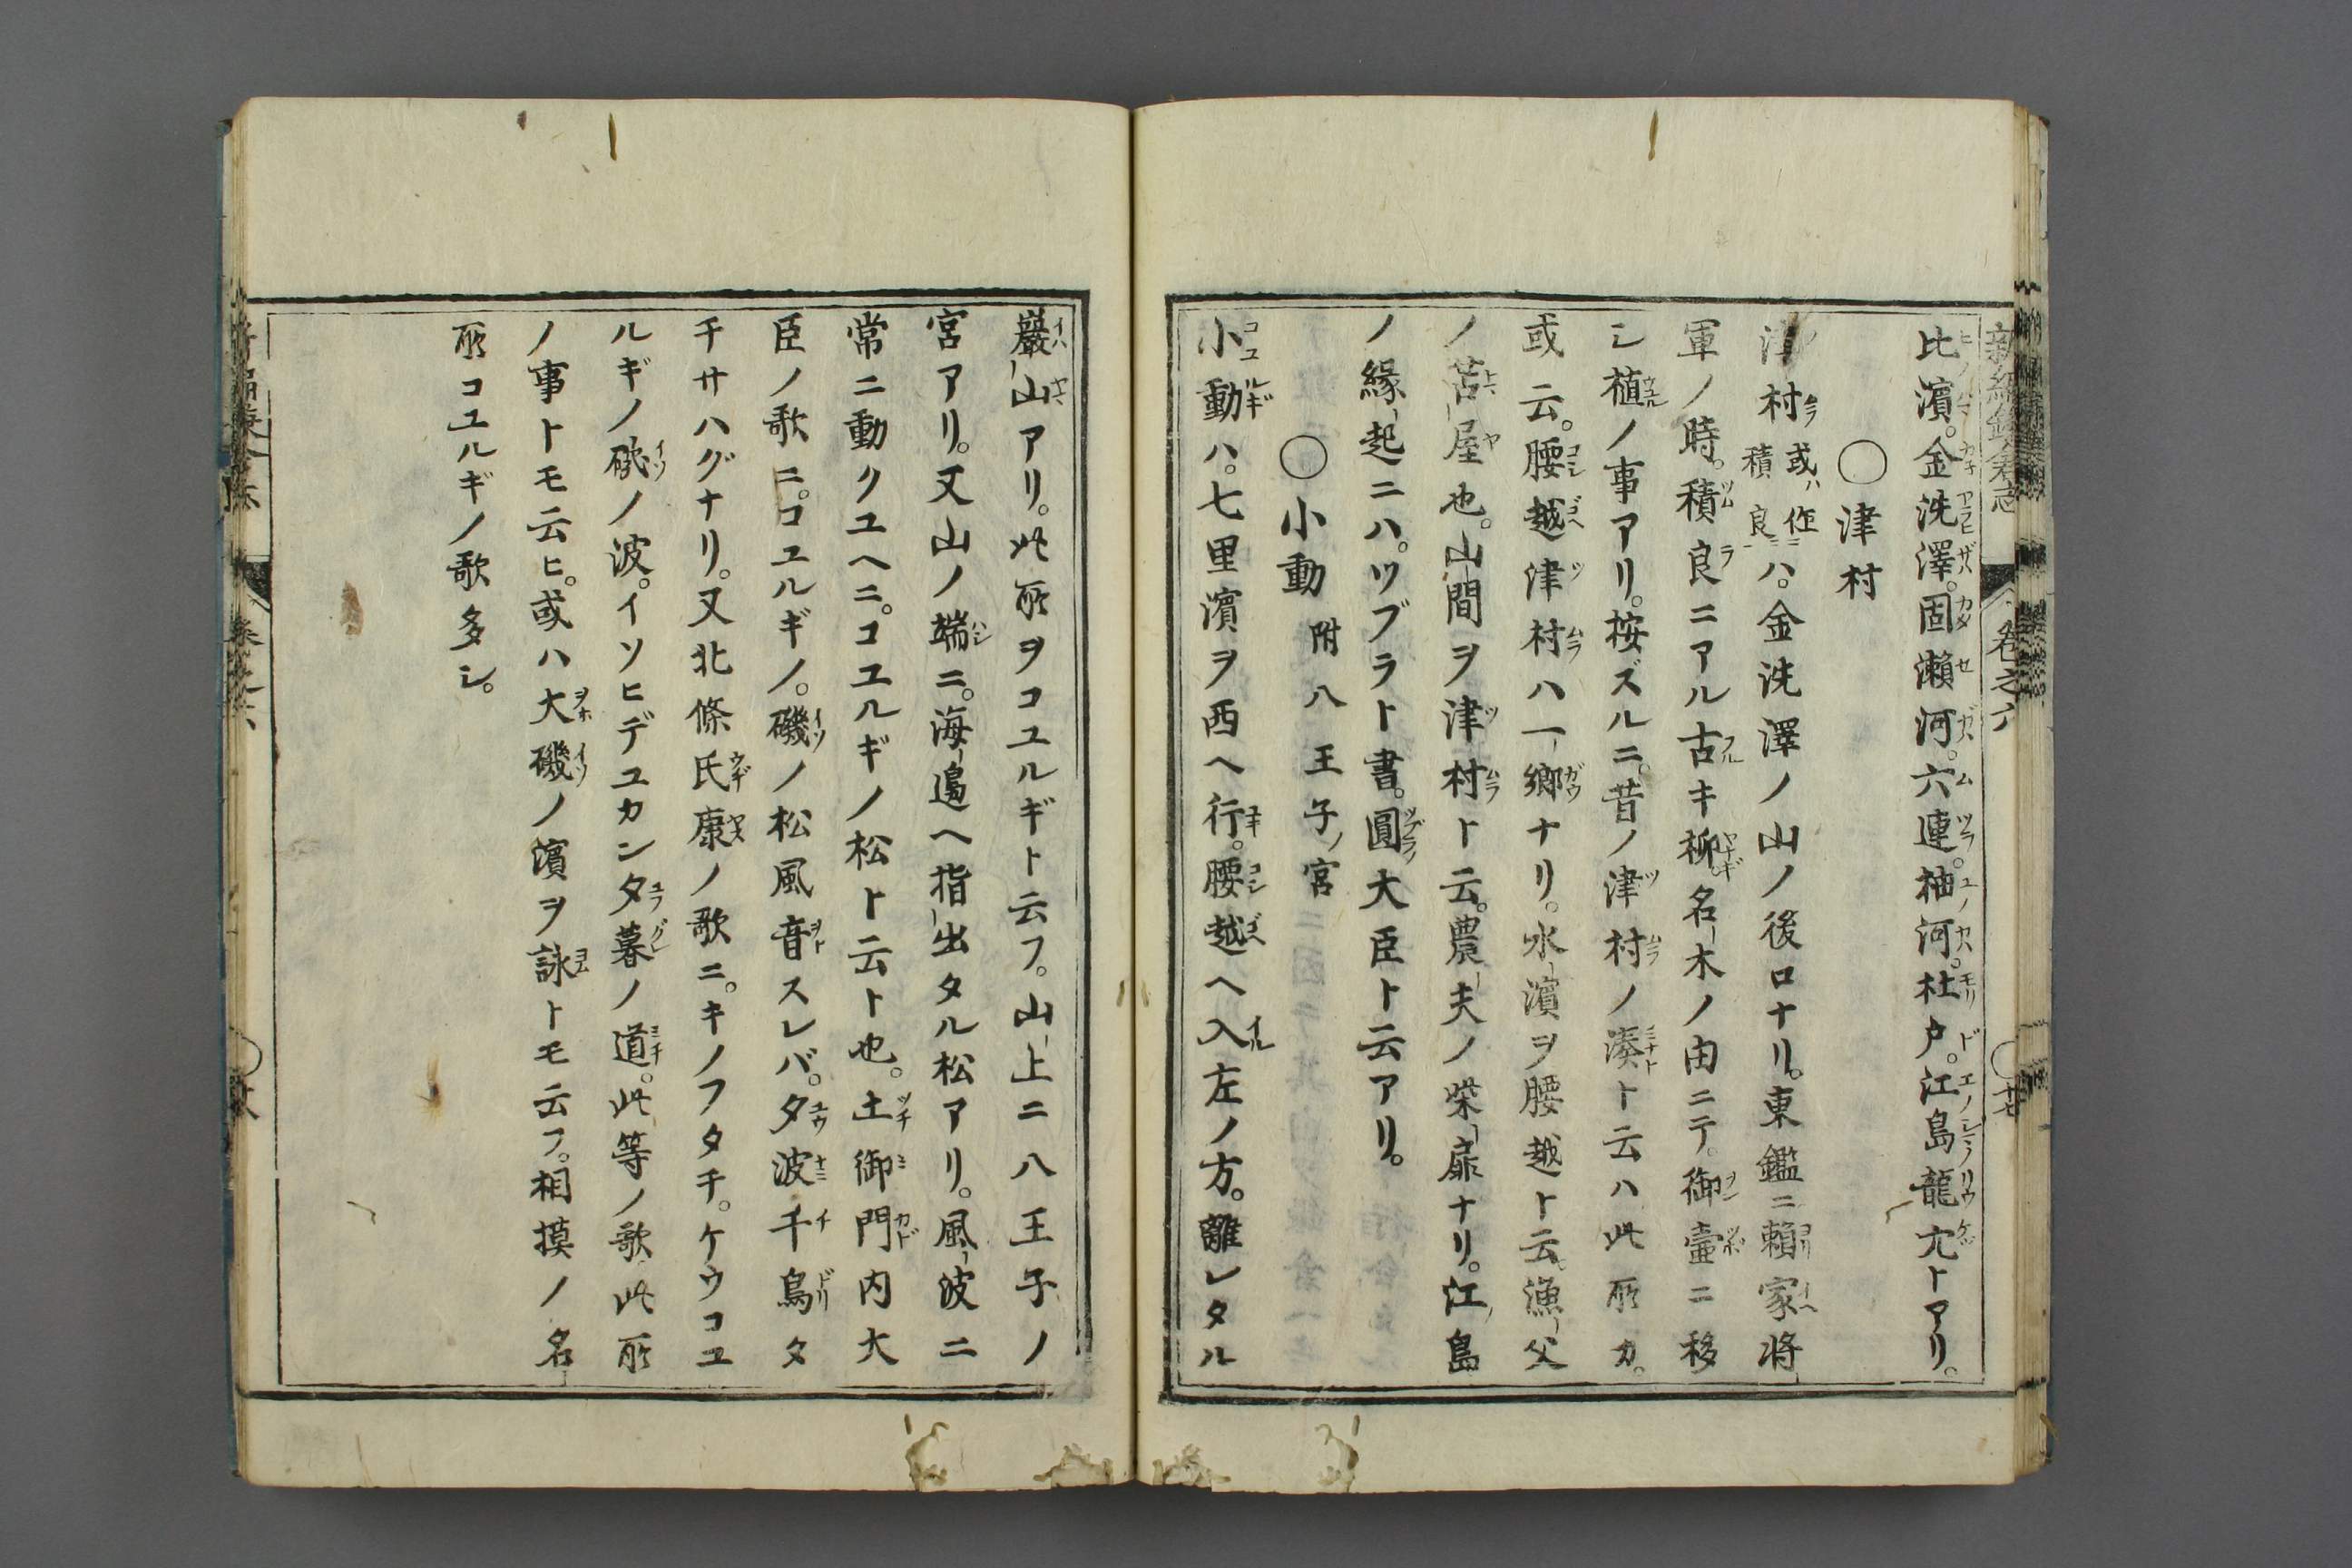 比濱。金洗澤。固瀬河。六連。柚河。杜戸。江島龍穴トアリ。
〇津村
津村或ハ作積良ニハ。金洗澤ノ山ノ後ロナリ。東鑑ニ頼家将
軍ノ時。積良ニアル古キ柳。名木ノ由ニテ。御壷ニ移
シ植ノ事アリ。按ズルニ。昔ノ津村ノ湊ト云ハ此所カ。
或云。腰越津村ハ一郷ナリ。水濱ヲ腰越ト云。漁父
ノ苫屋也。山間ヲ津村ト云。農夫ノ柴扉ナリ。江島
ノ縁起ニハ。ツブラト書。圓大臣ト云アリ。
〇小動 附八王子ノ宮
小動ハ。七里濱ヲ西ヘ行。腰越ヘ入左ノ方。離レタル
巖山アリ。此所ヲコユルギト云フ。山上ニ八王子ノ
宮アリ。又山ノ端ニ。海邉ヘ指出タル松アリ。風波ニ
常ニ動クユヘニ。コユルギノ松ト云ト也。土御門内大
臣ノ歌ニ。コユルギノ。磯ノ松風音スレバ。夕波千鳥タ
チサハグナリ。又北條氏康ノ歌ニ。キノフタチ。ケウコユ
ルギノ礒ノ波。イソヒデユカン夕暮ノ道。此等ノ歌此所
ノ事トモ云ヒ。或ハ大磯ノ濱ヲ詠トモ云フ。相摸ノ名
所コユルギノ歌多シ。